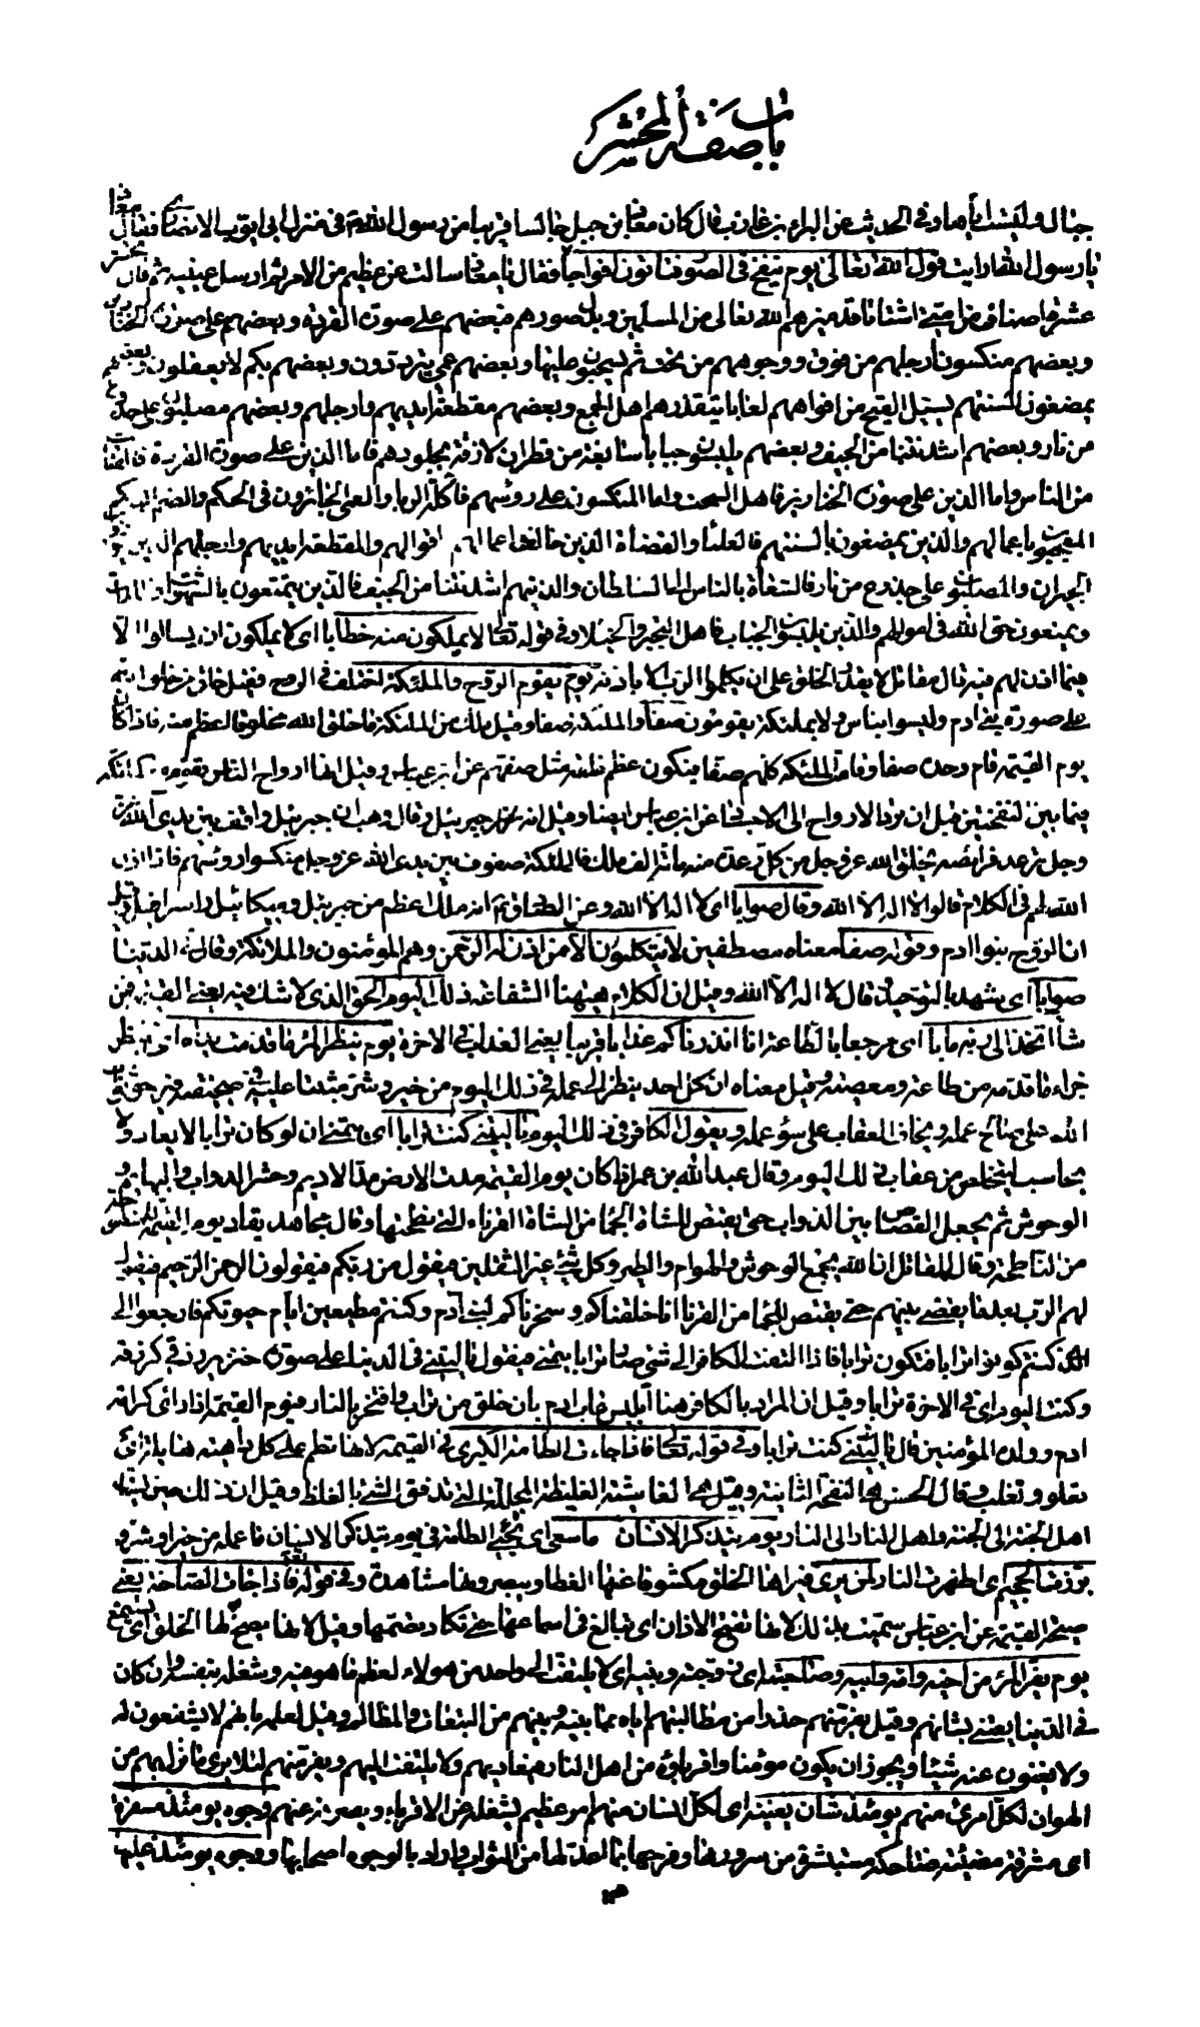 باب صفة المحشر
جبال وليست بأهباو في الحديث عن البراء بن عازب قال كان معاذ بن جبل جالسا قريبا من رسول الله في منزل ابى ايوب الانصارى فقال معاذ
يا رسول الله ارايت قول الله تعالى يوم ينفخ في الصور فتاتون افواجا فقال يا معاذ سالت عن عظيم من الامر ثم ارسل عينيه ثم قال يحشر
عشرة اصناف من امتى اشتاتا قد ميزهم الله تعالى من المسلمين وبدل صورهم فبعضهم على صورة القردة وبعضهم على صورة الخنازير
وبعضهم منكسون ارجلهم من فوق ووجوههم من تحت ثم يسحبون عليها وبعضهم عمى يترددون وبعضهم بكم لا يعقلون وبعضهم
يمضغون السنتهم يسيل القيح من افواههم لعابا يتقذرهم اهل الجمع وبعضهم مقطعة ايديهم وارجلهم وبعضهم مصلبون على جذوع
من نار وبعضهم اشد نتنا من الجيف وبعضهم يلبسون جبابا سابغة من قطران لازقة بجلودهم فاما الذين على صورة القردة فالقتات
من الناس واما الذين على صورة الخنازير فاهل السحت واما المنكسون على رؤسهم فاكلة الربا والعمى الجائرون في الحكم والصم البكم
المعجبون باعمالهم والذين يمضغون بالسنتهم فالعلماء والقضاة الذين خالف اعمالهم اقوالهم والمقطعة ايديهم وارجلهم الذين يؤذون
الجيران والمصلبون على جذوع من نار فالسعاة بالناس الى السلطان والذينهم اشد نتنا من الجيف فالذين يتمتعون بالشهوات واللذات
ويمنعون حق الله في اموالهم والذين يلبسون الجباب فاهل الفخر والخيلاء وفي قوله تعالى لا يملكون منه خطابا اى لا يملكون ان يسالوا الا
فيما اذن لهم فيه قال مقاتل لا يقدر الخلق على ان يكلموا الرب الا باذنه يوم يقوم الروح والملئكة اختلف في الروح فقيل خلق من خلق الله
على صورة بنى ادم وليسوا بناس ولا بملئكة يقومون صفا والملئكة صفا وقيل ملك من الملئكة ما خلق الله مخلوقا اعظم منه فاذا كان
يوم القيمة قام وحده صفا وقامت الملئكة كلهم صفا فيكون عظم خلقه مثل صفتهم عن ابن عباس وقيل انها ارواح الناس تقوم مع الملئكة
فيما بين النفختين قبل ان ترد الارواح الى الاجساد عن ابن عباس ايضا وقيل انه جبرئيل وقال وهب ان جبرئيل واقف بين يدى الله عز
وجل ترعد فرائصه يخلق الله عز وجل من كل رعدة منه مائة الف ملك فالملئكة صفوف بين يدى الله عز وجل منكسوا رؤسهم فاذا اذن
الله لهم في الكلام قالوا لا اله الا الله وقال صوابا اى لا اله الا الله وعن الصادق انه ملك اعظم من جبرئيل وميكائيل واسرافيل وقيل
ان الروح بنوا ادم وقوله صفا معناه مصطفين لا يتكلمون الا من اذن له الرحمن وهم المؤمنون والملائكة وقال في الدنيا
صوابا اى شهد بالتوحيد وقال لا اله الا الله وقيل ان الكلام هيهنا الشفاعة ذلك اليوم الحق الذى لا شك فيه يعنى القيمة فمن
شاء اتخذ الى ربه مابا اى مرجعا بالطاعة انا انذرناكم عذابا قريبا يعنى العذاب في الاخرة يوم ينظر المرء ما قدمت يداه اى ينظر
جزاء ما قدمه من طاعة ومعصية وقيل معناه ان كل احد ينظر الى عمله في ذلك اليوم من خير وشر مثبتا عليه في صحيفته فيرجو ثواب
الله على صالح عمله ويخاف العقاب على سوء عمله ويقول الكافر في ذلك اليوم يا ليتنى كنت ترابا اى يتمنى ان لو كان ترابا لا يعاد ولا
يحاسب ليتخلص من عقاب ذلك اليوم وقال عبد الله بن عمر اذا كان يوم القيمة مدت الارض مد الاديم وحشر الدواب والبهائم و
الوحوش ثم يجعل القصاص بين الدواب حتى يقتص للشاة الجماء من الشاة القرناء التى نطحتها وقال مجاهد يقاد يوم القيمة للمنطوحة
من الناطحة وقال المقاتل ان الله يجمع الوحوش والهوام والطير وكل شئ غير الثقلين فيقول من ربكم فيقولون الرحمن الرحيم فيقول
لهم الرب بعد ما يقضى بينهم حتى يقتص للجماء من القرناء انا خلقناكم وسخرناكم لبنى آدم وكنتم مطيعين ايام حيوتكم فارجعوا الى
الذى كنتم كونوا ترابا فتكون ترابا فاذا التفت الكافر الى شئ صار ترابا يتمنى فيقول يا ليتنى في الدنيا على صورة خنزير رزقى كرزقه
وكنت اليوم اى في الاخرة ترابا وقيل ان المراد بالكافر هنا ابليس عاب ادم بان خلق من تراب وافتخر بالنار فيوم القيمة اذا راى كرامة
ادم وولده المؤمنين قال يا ليتنى كنت ترابا وفي قوله تعالى فاذا جاءت الطامة الكبرى في القيمة لانها تطم على كل داهية هائلة اى
تعلو وتغلب وقال الحسن هى النفخة الثانية وقيل هى الغاشية الغليظة المجللة التى تدفق الشئ بالغلظ وقيل ان ذلك حين يساق
اهل الجنة الى الجنة واهل النار الى النار يوم يتذكر الانسان ما سعى اى تجئ الطامة في يوم يتذكر الانسان ما عمله من خير وشر و
برزت الجحيم اى اظهرت النار لمن يرى فيراها الخلق مكشوفا عنها الغطا ويبصرونها مشاهدة وفي قوله تعالى فاذا جاءت الصاخة يعنى
صيحة القيمة عن ابن عباس سميت بذلك لانها تصخ الاذان اى تبالغ في اسماعها حتى تكاد تصمها وقيل لانها يصخ لها الخلق اى يستمع
يوم يفر المرء من اخيه وامه وابيه وصاحبته اى زوجته وبنيه اى لا يلتفت الى واحد من هولاء لعظم ما هو فيه وشغله بنفسه وان كان
في الدنيا يعتنى بشانهم وقيل يفر منهم حذرا من مطالبتهم اياه بما بينه وبينهم من التبعات والمظالم وقيل لعلمه بانهم لا ينفعون له
ولا يغنون عنه شيئا ويجوز ان يكون مؤمنا واقرباؤه من اهل النار فيعاديهم ولا يلتفت اليهم ويفر منهم لئلا يرى ما نزل بهم من
الهوان لكل امرئ منهم يومئذ شان يغنيه اى لكل انسان منهم امر عظيم يشغله عن الاقرباء ويصرفه عنهم وجوه يومئذ مسفرة
اى مشرقة مضيئة ضاحكة مستبشرة من سرورها وفرحها بما اعد لها من الثواب واراد بالوجوه اصحابها ووجوه يومئذ عليها